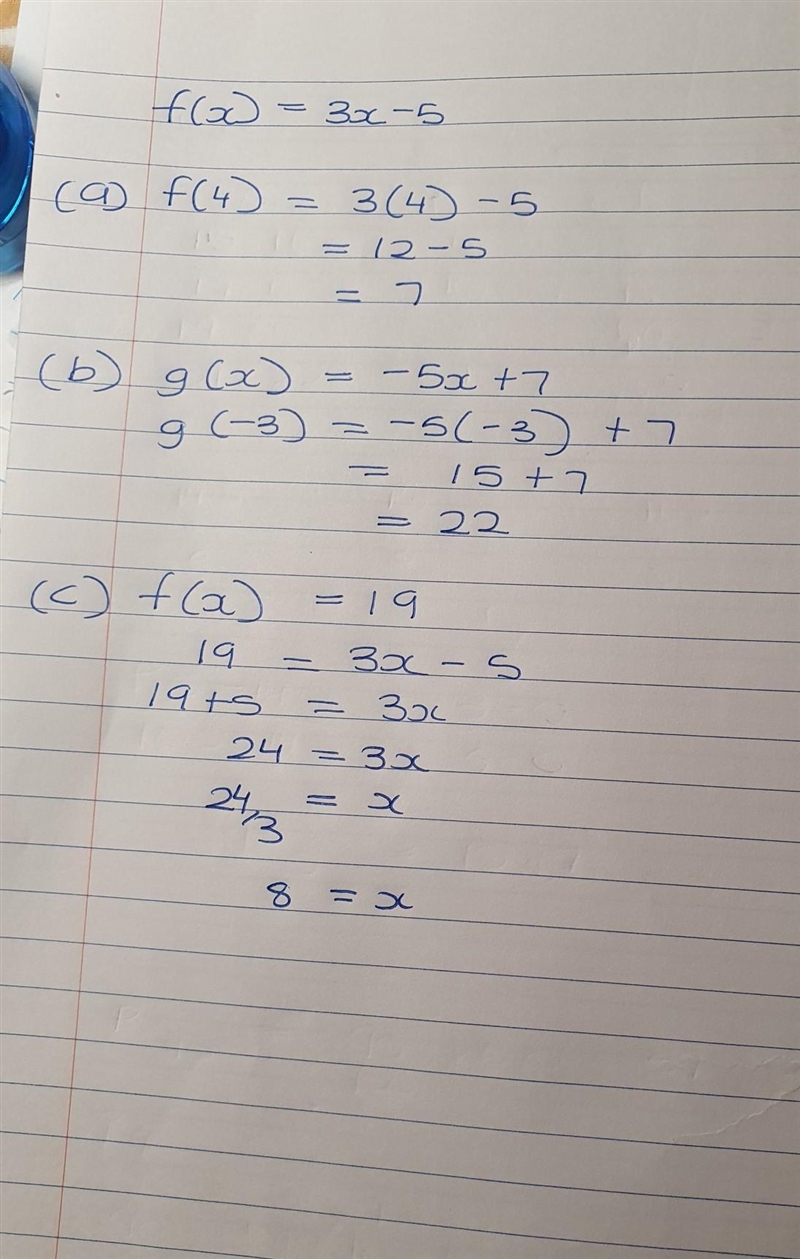 f(x) = 3x - 5
(a) f(4) = 3(4) - 5
= 12 - 5
= 7
(b) g(x) = -5x + 7
g(-3) = -5(-3) + 7
= 15 + 7
= 22
(c) f(x) = 19
19 = 3x - 5
19 + 5 = 3x
24 = 3x
24/3 = x
8 = x